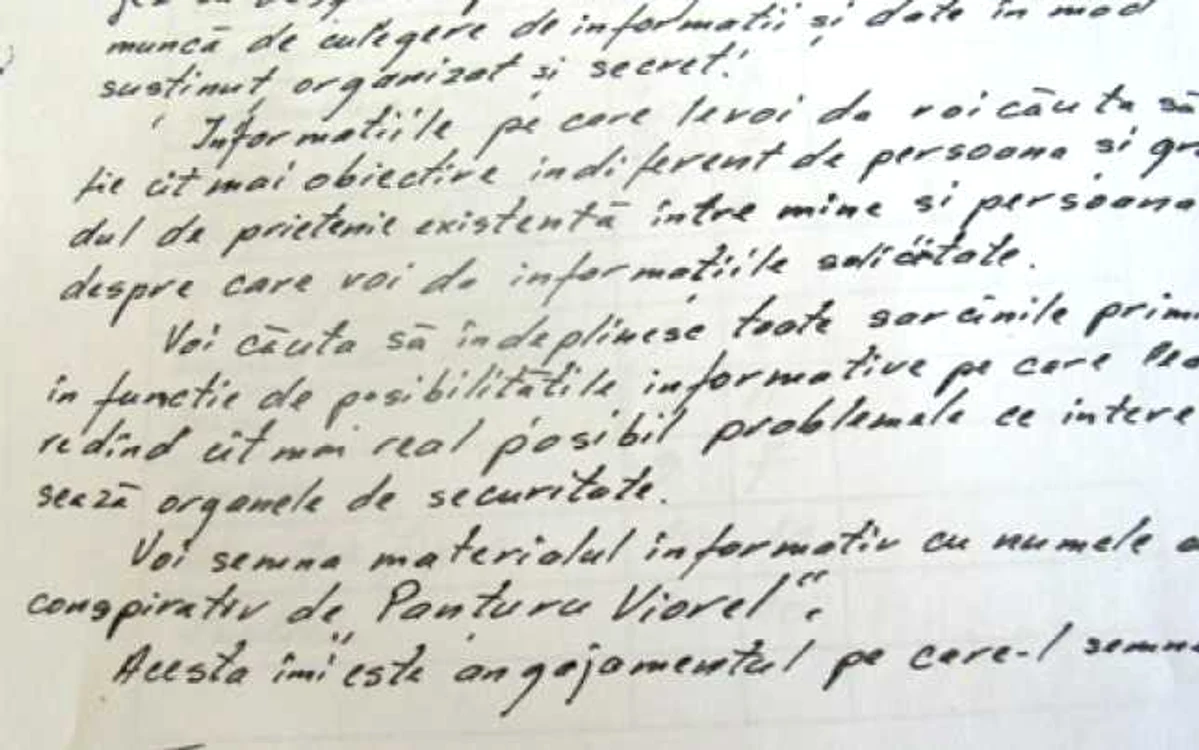 muncă de culegere de informatii și date în mod
susținut organizat și secret.
Informatiile pe care levoi da voi căuta să
fie cît mai obiective indiferent de persoana si gra
dul de prietenie existentă între mine si persoana
despre care voi da informațiile solicitate.
Voi căuta să îndeplinesc toate sarcinile primi
în functie de posibilitățile informative pe care
redînd cît mai real posibil problemele ce intere
sează organele de securitate.
Voi semna materialul informativ cu numele
conspirativ de „Panturu Viorel".
Acesta îmi este angajamentul pe care-l semn